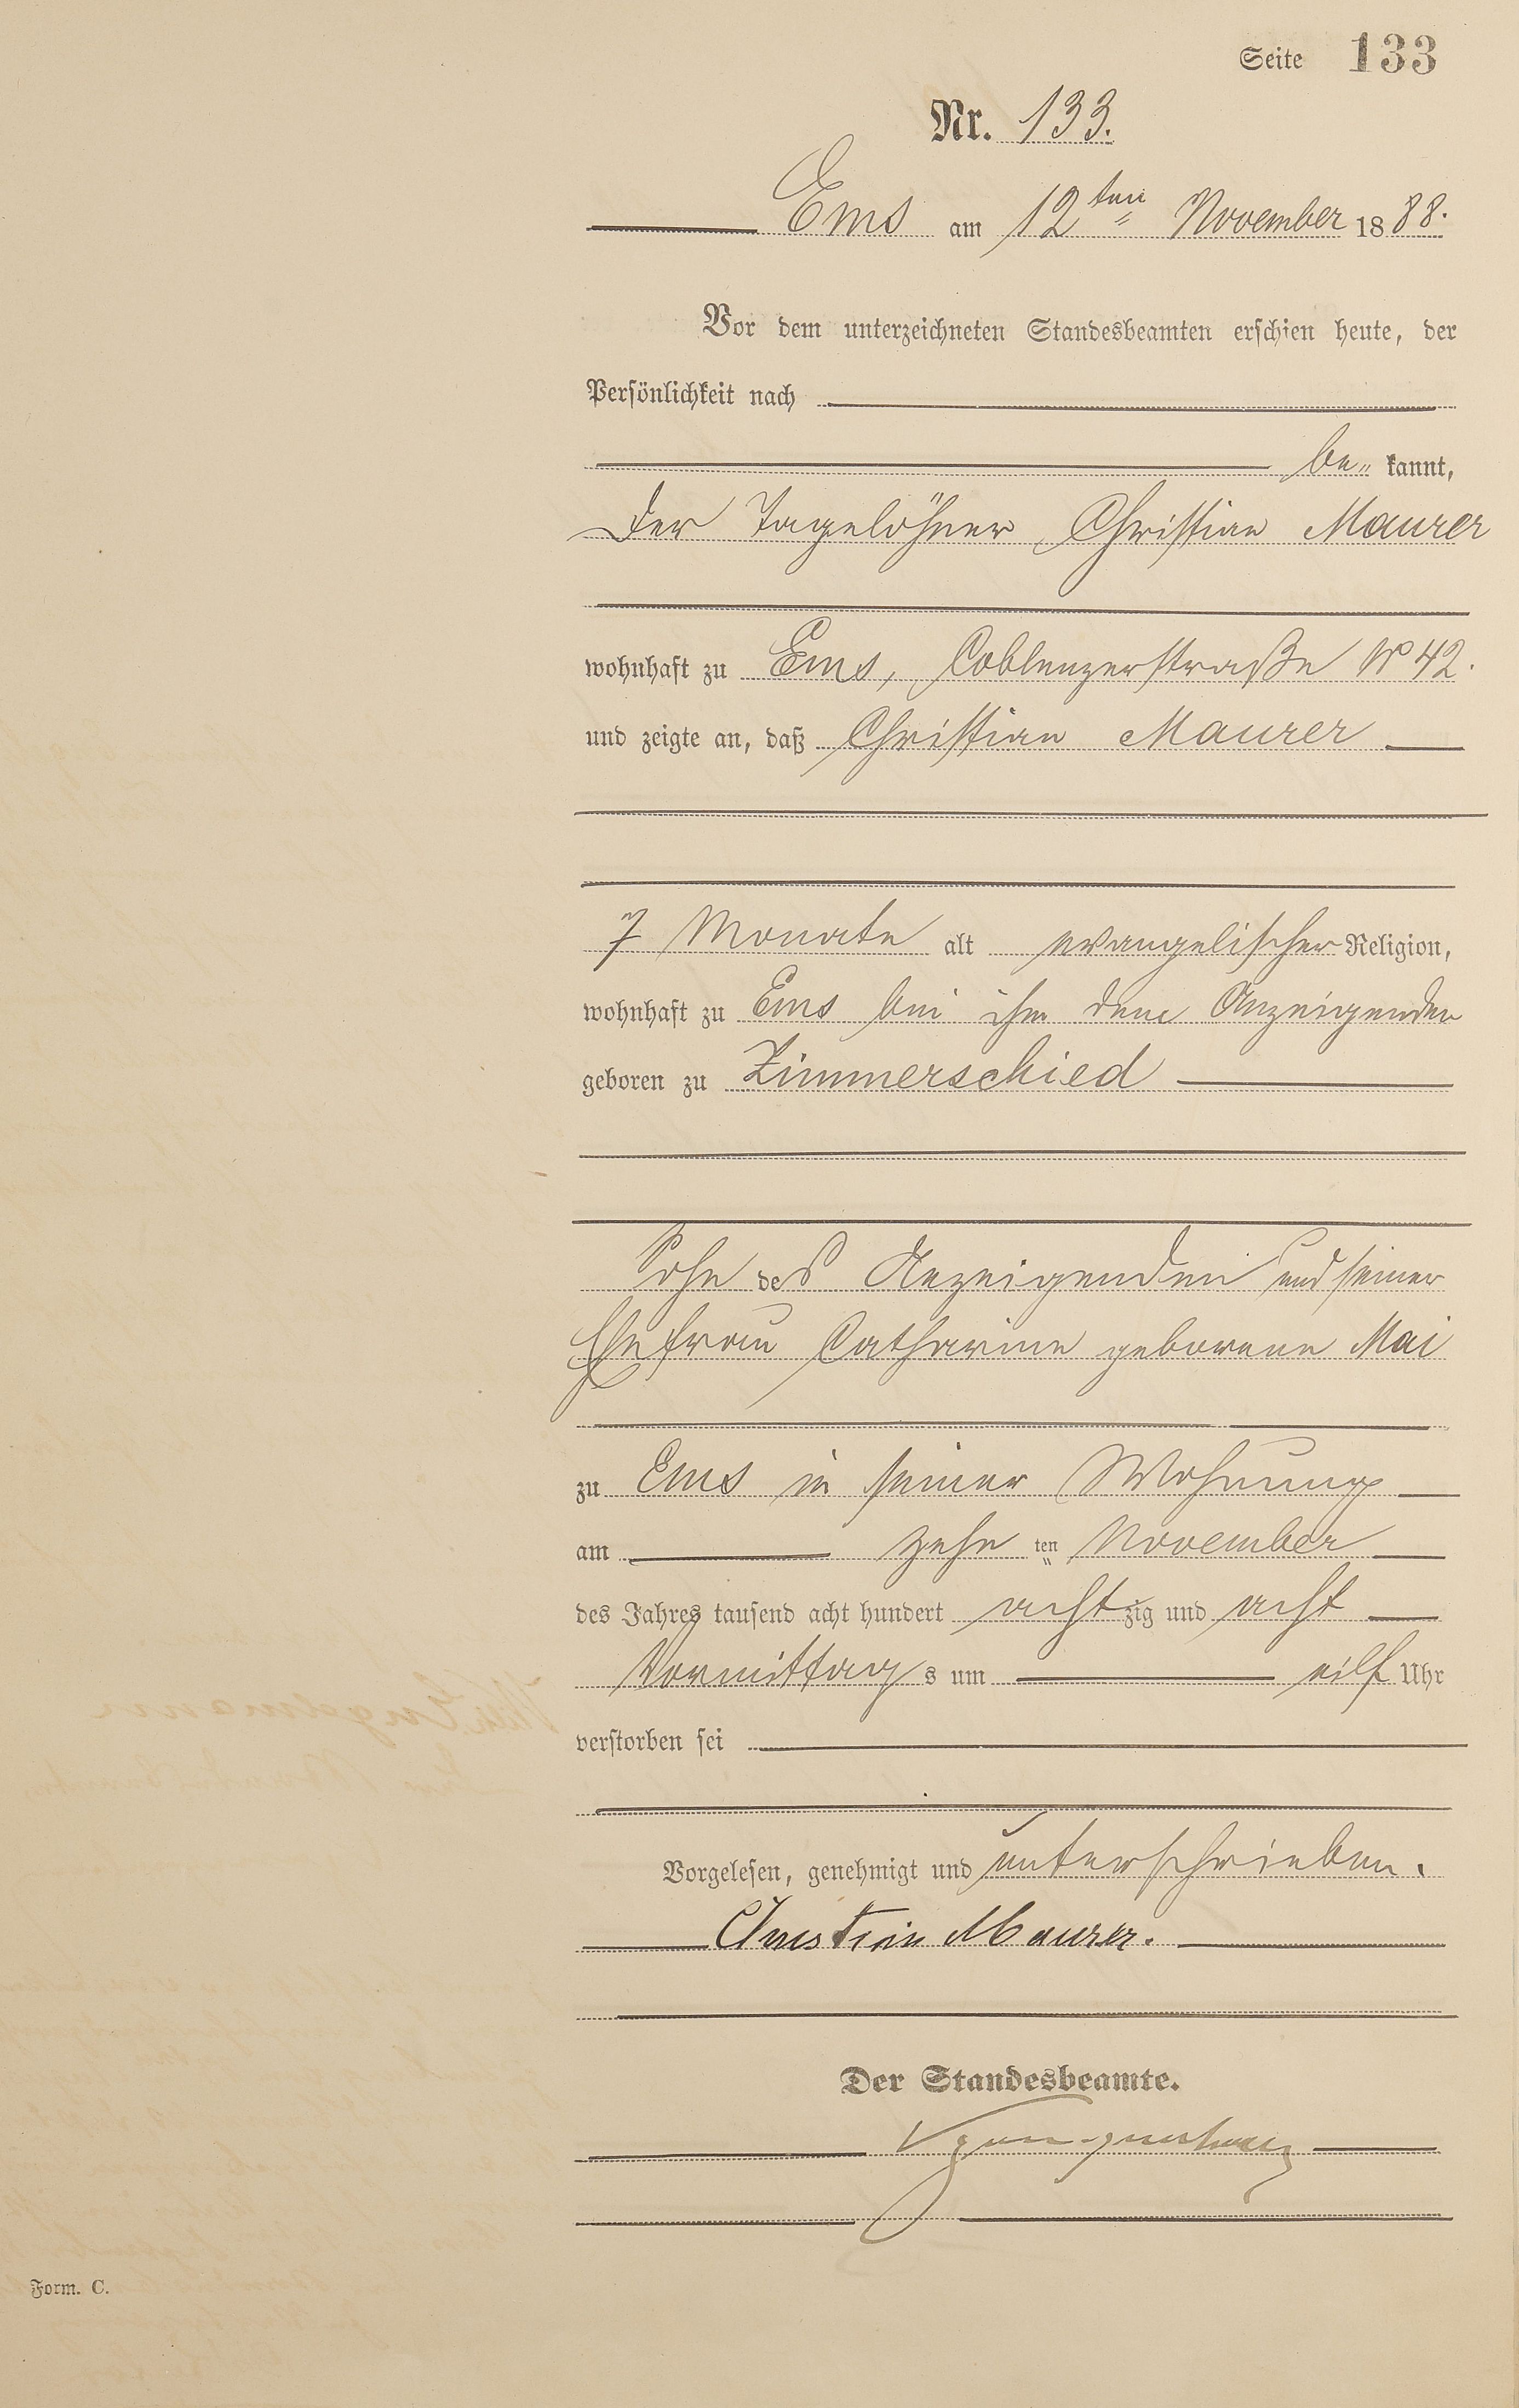 Seite 133
Nr. 133.
Ems am 12ten November 1888.
Vor dem unterzeichneten Standesbeamten erschien heute, der
Persönlichkeit nach
be„ kannt,
der Tagelöhner Christian Maurer
wohnhaft zu Ems, Coblenzerstraße No 42.
und zeigte an, daß Christian Maurer
7 Monate alt evangelischer Religion,
wohnhaft zu Ems bei ihm dem Anzeigenden
geboren zu Zimmerschied
Sohn des Anzeigenden und seiner
Ehefrau Catharine geborene Mai
zu Ems in seiner Wohnung
am zehn ten November
des Jahres tausend acht hundert achtzig und acht
Vormittags um eilf Uhr
verstorben sei
Vorgelesen, genehmigt und unterschrieben.
Christian Maurer.
Der Standesbeamte.
Form. C.